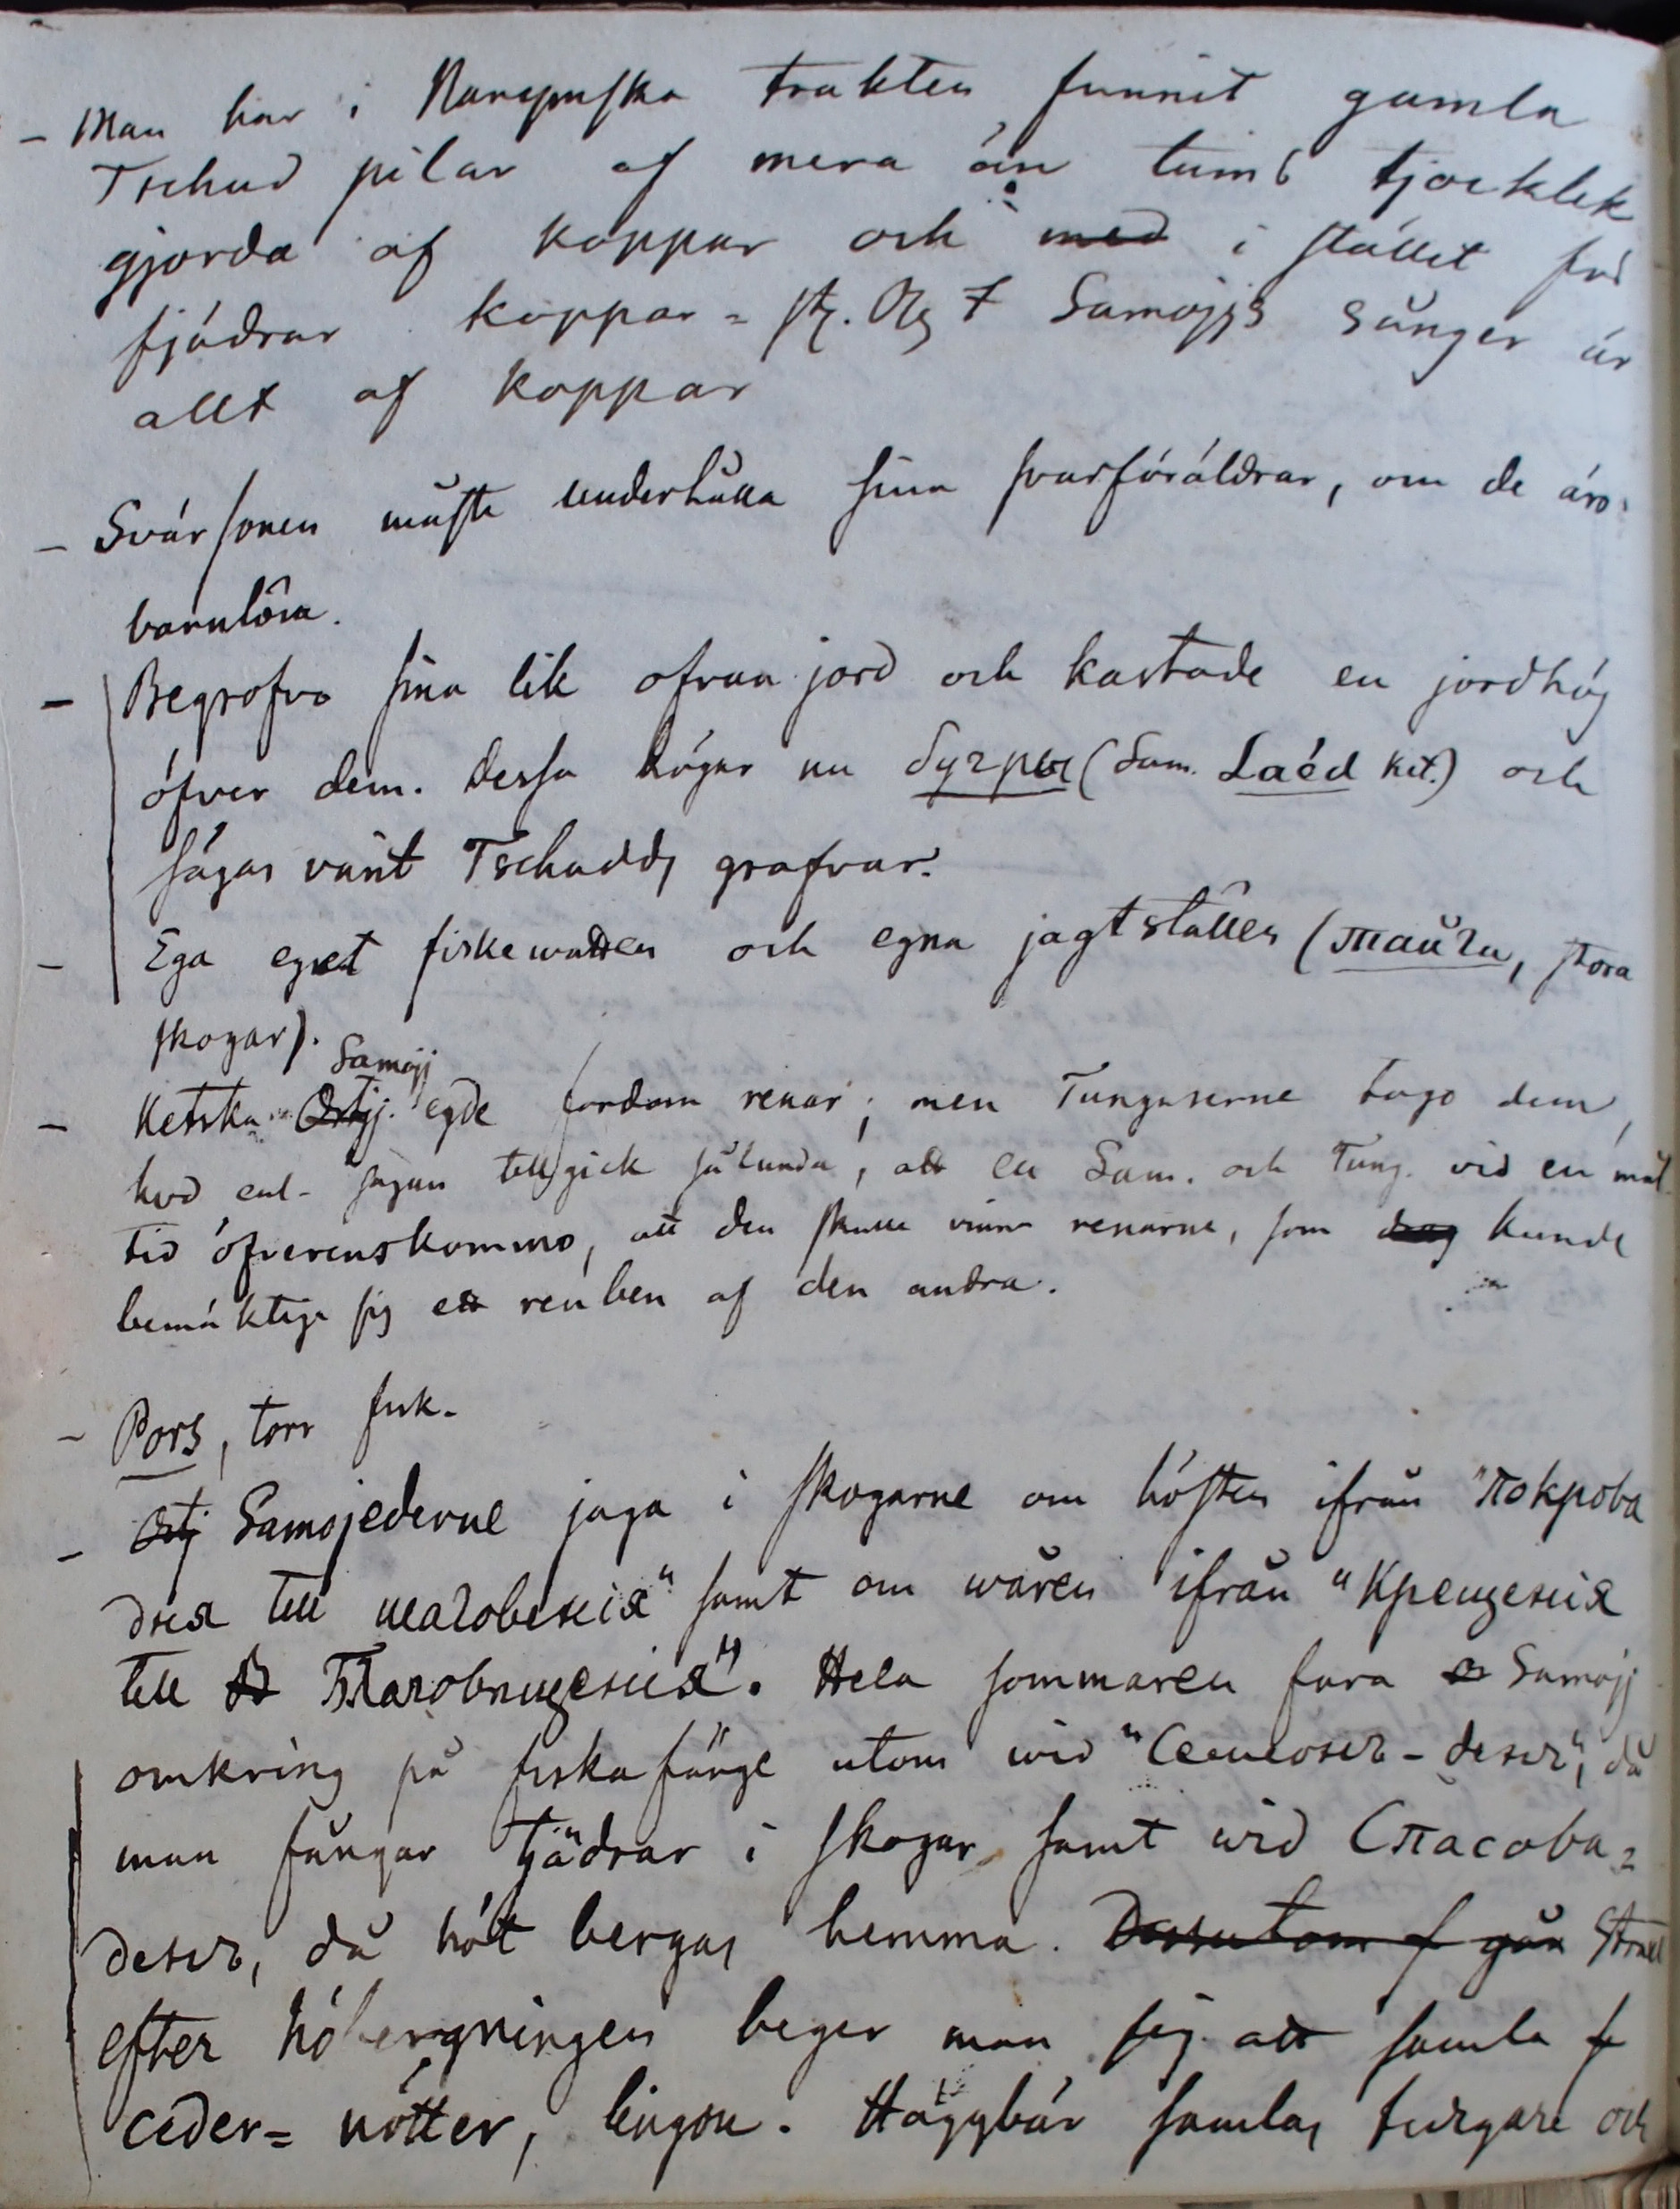 – Man har i Narymska trakten funnit gamla
Tschud pilar af mera än tums tjocklek
gjorda af koppar och med i stället för
fjädrar koppar= Samojj sånger är
allt af koppar
– Svärsonen måste underhålla sina svärföräldrar, om de äro
barnlösa.
– Begrofvo sina lik ofvan jord och kastade en jordhög
öfver dem. Dessa högar nu бугры (Sam. Laéd Ket.) och
sägas varit Tschuds grafvar.
– Ega eget fiskevatten och egna jagtställen (тайги, stora
skogar).
Samojj
– Ketska Ostj. egde fordom renar; men Tunguserne togo dem,
hvd enl. sagan tillgick sålunda, att en Sam. och Tung. vid en mål
tid öfverenskommo, att den skulle vinna renarne, som drog kunde
bemäktiga sig ett renben af den andra.
– Pors, torr fisk.
– Ostj Samojederne jaga i skogarne om hösten ifrån "Покрова
дня till" samt om våren ifrån "Крещенія
till Благовищенія". Hela sommaren fara Samojj
omkring på fiskafänge utom vid "Семенъ-денъ", då
man fångar tjädrar i skogar samt vid Спасова=
денъ, då höt bergas hemma. Dessutom f gå Strax
efter höbergningen beger man sig att samla
ceder= nötter, lingon. Häggbär samlas tidigare och